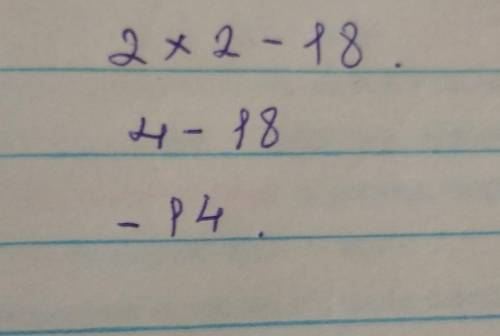 2 × 2 - 18.
4 - 18
- 14.